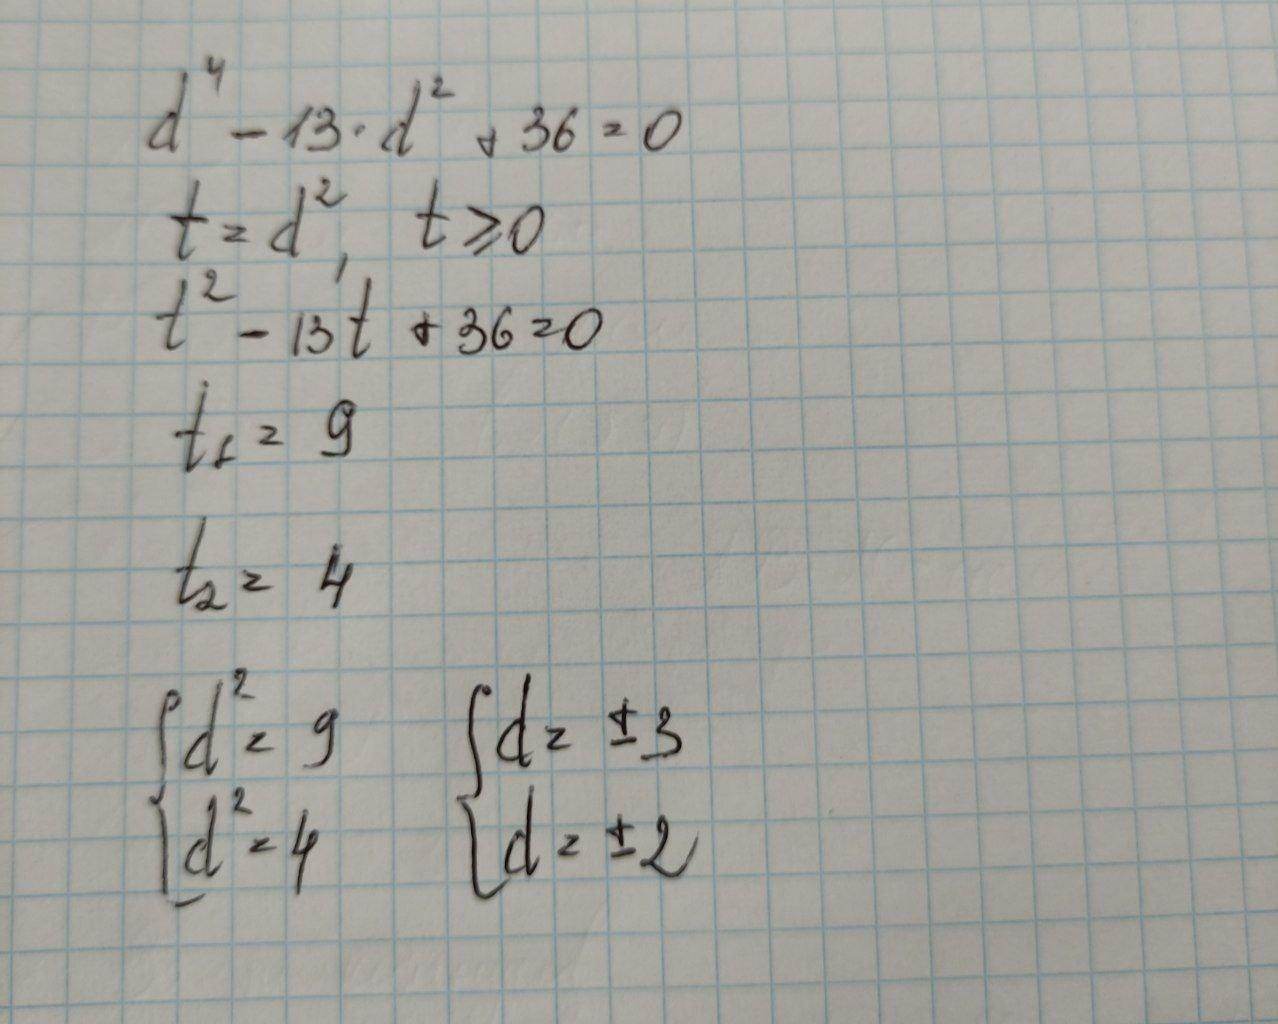 d⁴ - 13 · d² + 36 = 0
t = d², t ⩾ 0
t² - 13t + 36 = 0
t₁ = 9
t₂ = 4
{ d² = 9 { d = ±3
d² = 4 d = ±2